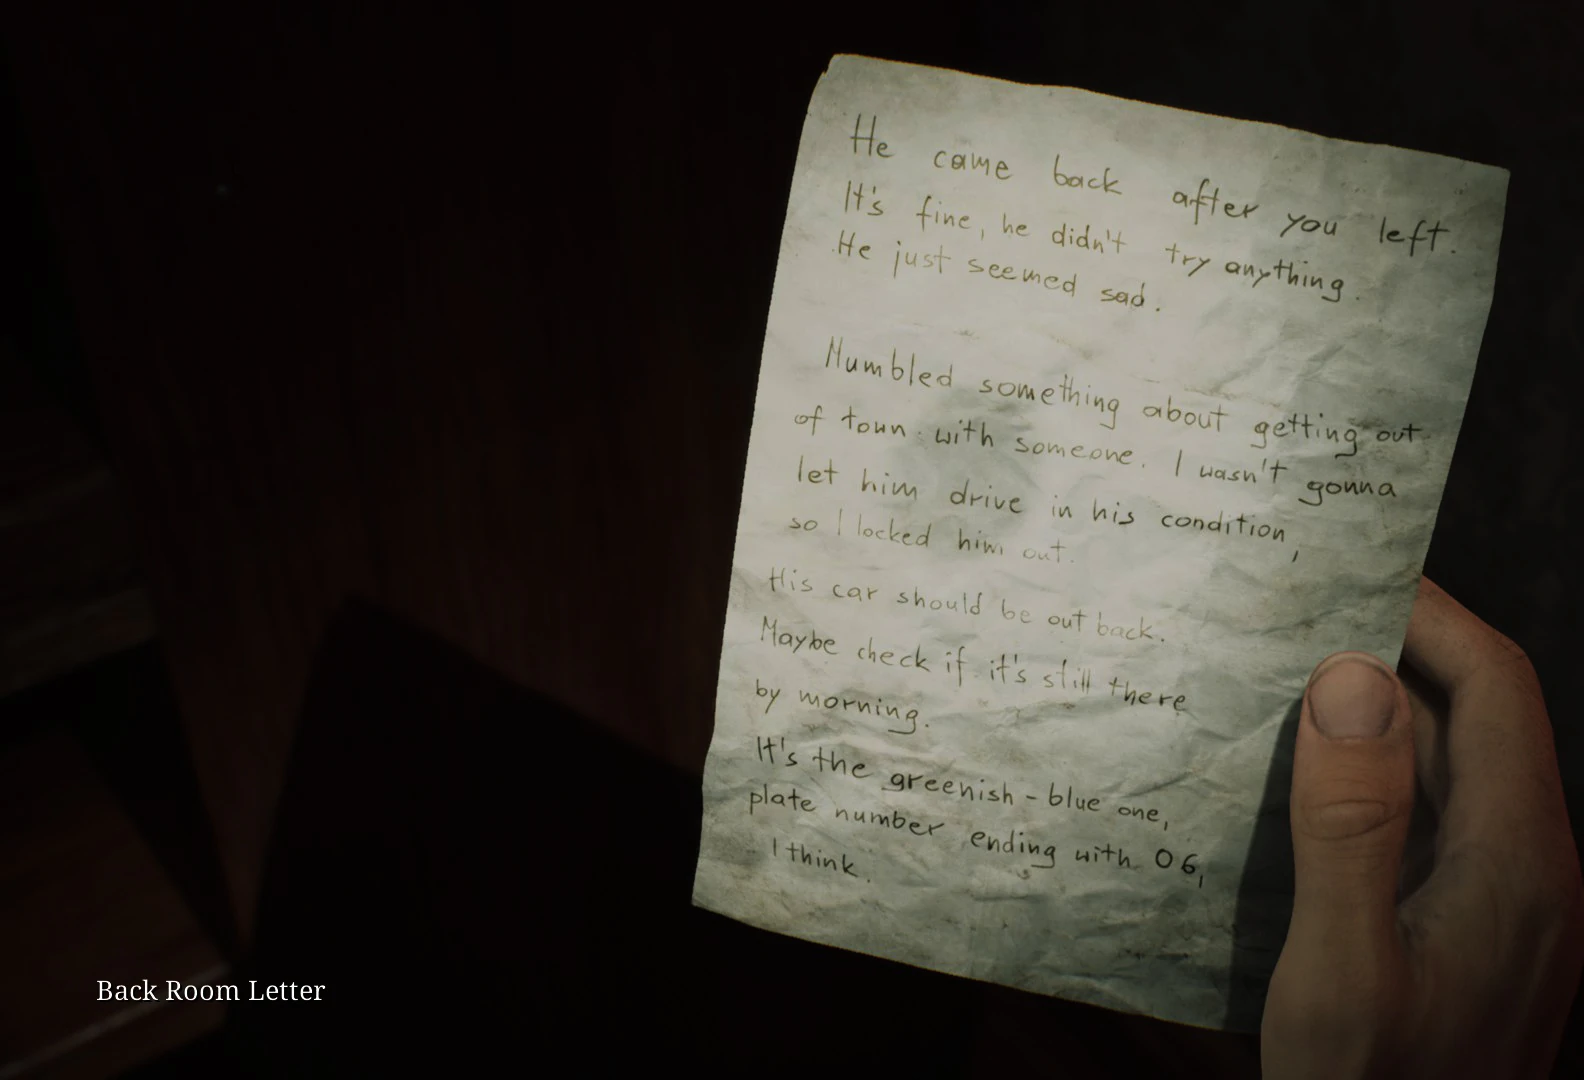 He came back after you left.
It's fine, he didn't try anything.
He just seemed sad.
Mumbled something about getting out
of town with someone. I wasn't gonna
let him drive in his condition,
so I locked him out.
His car should be out back.
Maybe check if it's still there
by morning.
It's the greenish-blue one,
plate number ending with 06,
I think.
Back Room Letter